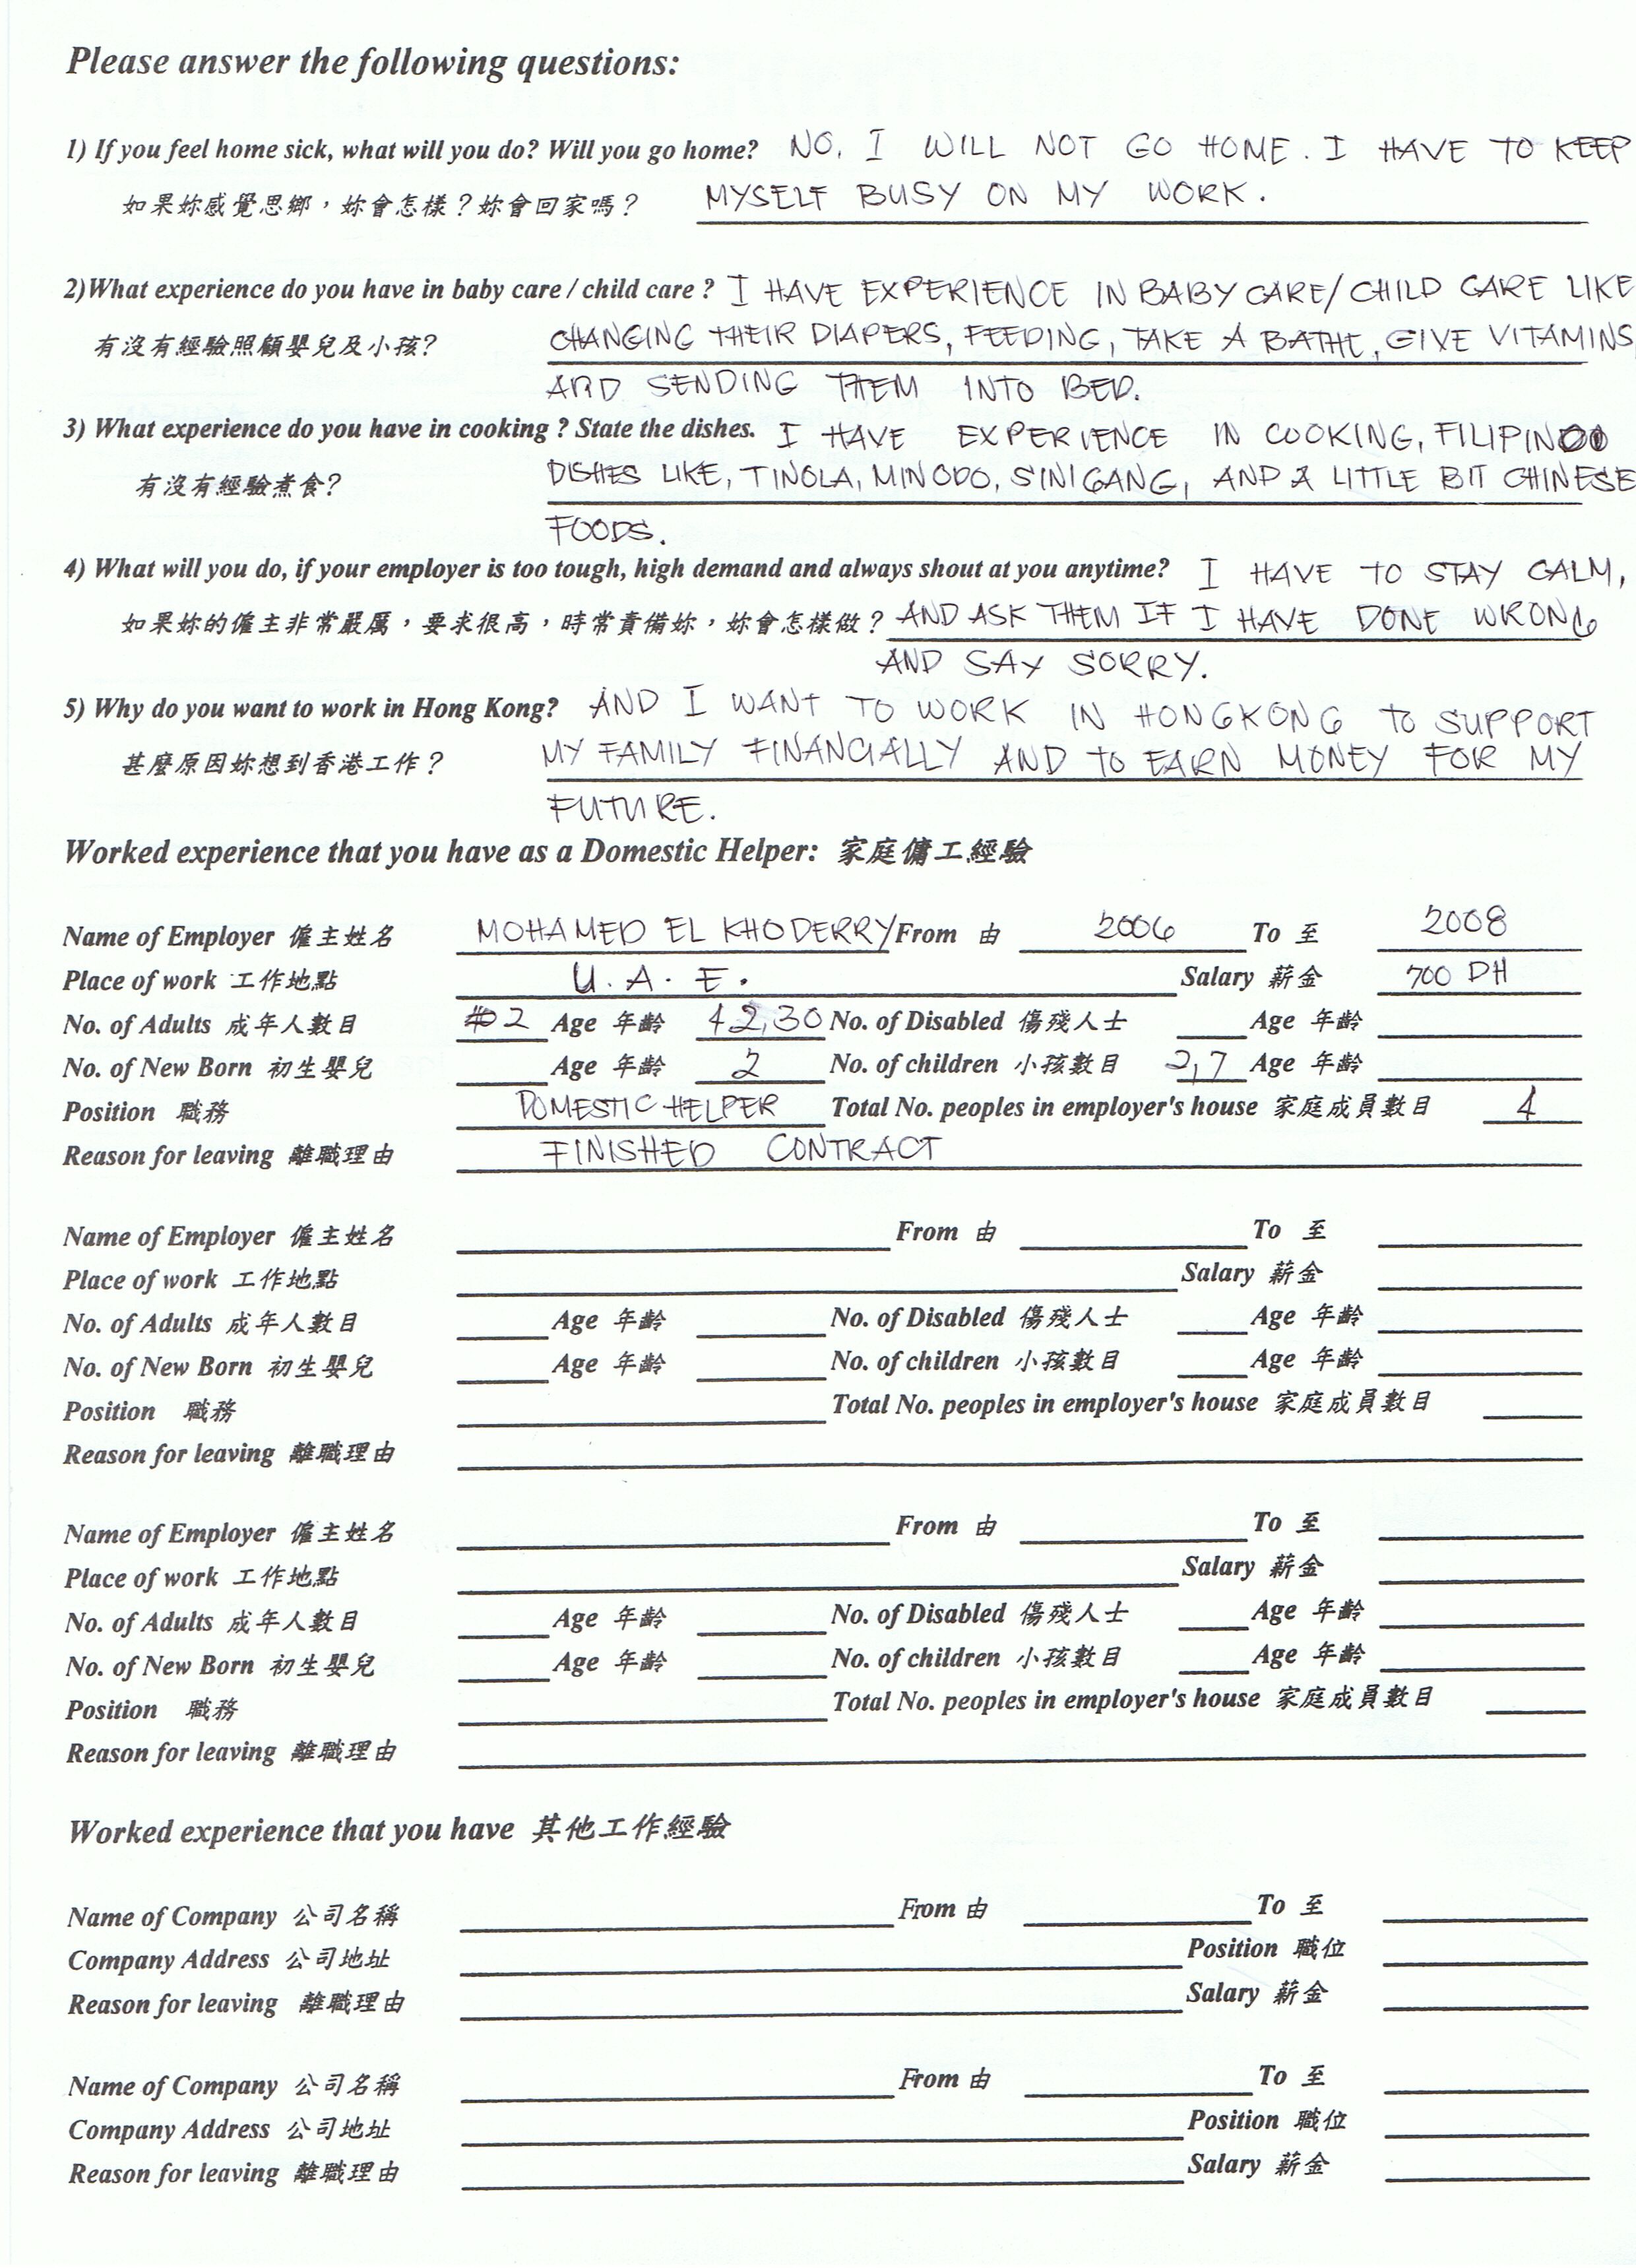 Please answer the following questions:
1) If you feel home sick, what will you do? Will you go home? NO. I WILL NOT GO HOME. I HAVE TO KEEP
如果妳感覺思鄉，妳會怎樣？妳會回家嗎？ MYSELF BUSY ON MY WORK.
2)What experience do you have in baby care / child care ? I HAVE EXPERIENCE IN BABY CARE/CHILD CARE LIKE
有沒有經驗照顧嬰兒及小孩? CHANGING THEIR DIAPERS, FEEDING, TAKE A BATHE, GIVE VITAMINS
AND SENDING THEM INTO BED.
3) What experience do you have in cooking ? State the dishes. I HAVE EXPERIENCE IN COOKING, FILIPINO
有沒有經驗煮食? DISHES LIKE, TINOLA, MINODO, SINIGANG, AND A LITTLE BIT CHINESE
FOODS.
4) What will you do, if your employer is too tough, high demand and always shout at you anytime? I HAVE TO STAY CALM,
如果妳的僱主非常嚴厲，要求很高，時常責備妳，妳會怎樣做？ AND ASK THEM IF I HAVE DONE WRONG
AND SAY SORRY.
5) Why do you want to work in Hong Kong? AND I WANT TO WORK IN HONGKONG TO SUPPORT
甚麼原因妳想到香港工作？ MY FAMILY FINANCIALLY AND TO EARN MONEY FOR MY
FUTURE.
Worked experience that you have as a Domestic Helper: 家庭傭工經驗
Name of Employer 僱主姓名 MOHAMED EL KHODERRY From 由 2006 To 至 2008
Place of work 工作地點 U.A.E. Salary 薪金 700 DH
No. of Adults 成年人數目 2 Age 年齡 42,30 No. of Disabled 傷殘人士 Age 年齡
No. of New Born 初生嬰兒 Age 年齡 2 No. of children 小孩數目 2,7 Age 年齡
Position 職務 DOMESTIC HELPER Total No. peoples in employer's house 家庭成員數目 4
Reason for leaving 離職理由 FINISHED CONTRACT
Name of Employer 僱主姓名 From 由 To 至
Place of work 工作地點 Salary 薪金
No. of Adults 成年人數目 Age 年齡 No. of Disabled 傷殘人士 Age 年齡
No. of New Born 初生嬰兒 Age 年齡 No. of children 小孩數目 Age 年齡
Position 職務 Total No. peoples in employer's house 家庭成員數目
Reason for leaving 離職理由
Name of Employer 僱主姓名 From 由 To 至
Place of work 工作地點 Salary 薪金
No. of Adults 成年人數目 Age 年齡 No. of Disabled 傷殘人士 Age 年齡
No. of New Born 初生嬰兒 Age 年齡 No. of children 小孩數目 Age 年齡
Position 職務 Total No. peoples in employer's house 家庭成員數目
Reason for leaving 離職理由
Worked experience that you have 其他工作經驗
Name of Company 公司名稱 From 由 To 至
Company Address 公司地址 Position 職位
Reason for leaving 離職理由 Salary 薪金
Name of Company 公司名稱 From 由 To 至
Company Address 公司地址 Position 職位
Reason for leaving 離職理由 Salary 薪金